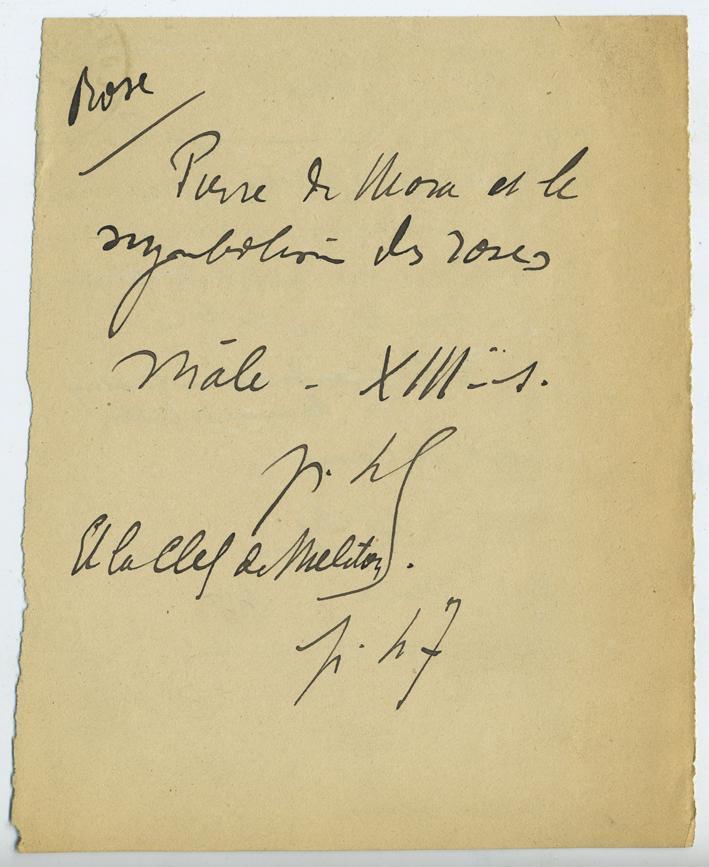 Rose
Pierre de Mora et le
symbolisme des roses
Mâle - XIIIe s.
p.
Et la Clef de Meliton.
p. 47